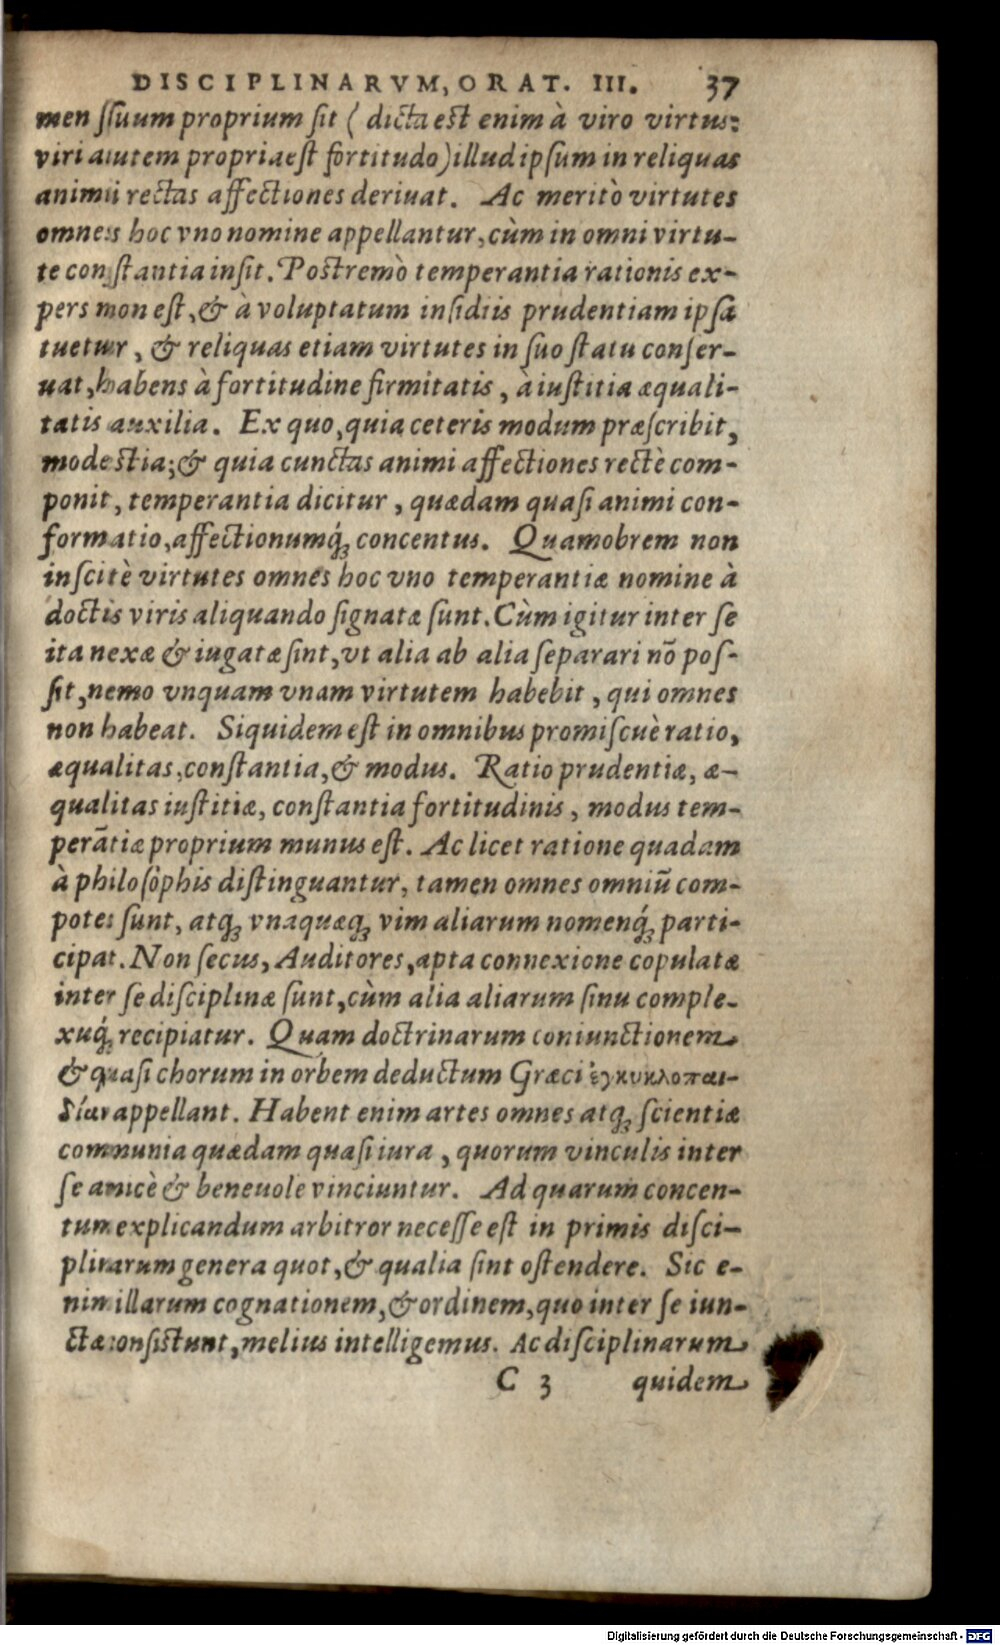 DISCIPLINARVM, ORAT. III. 37
men suum proprium sit ( dicta est enim à viro virtus:
viri autem propria est fortitudo) illud ipsum in reliquas
animi rectas affectiones deriuat. Ac meritò virtutes
omnes hoc vno nomine appellantur, cùm in omni virtu-
te constantia insit. Postremò temperantia rationis ex-
pers non est, & à voluptatum insidiis prudentiam ipsã
tuetur, & reliquas etiam virtutes in suo statu conser-
uat, habens à fortitudine firmitatis, à iustitia æquali-
tatis auxilia. Ex quo, quia ceteris modum præscribit,
modestia; & quia cunctas animi affectiones rectè com-
ponit, temperantia dicitur, quædam quasi animi con-
formatio, affectionumq́; concentus. Quamobrem non
inscitè virtutes omnes hoc vno temperantiæ nomine à
doctis viris aliquando signatæ sunt. Cùm igitur inter se
ita nexæ & iugatæ sint, vt alia ab alia separari nõ pos-
sit, nemo vnquam vnam virtutem habebit, qui omnes
non habeat. Siquidem est in omnibus promiscuè ratio,
æqualitas, constantia, & modus. Ratio prudentiæ, æ-
qualitas iustitiæ, constantia fortitudinis, modus tem-
perãtiæ proprium munus est. Ac licet ratione quadam
à philosophis distinguantur, tamen omnes omniũ com-
potes sunt, atq; vnaquæq; vim aliarum nomenq́; parti-
cipat. Non secus, Auditores, apta connexione copulatæ
inter se disciplinæ sunt, cùm alia aliarum sinu comple-
xuq́; recipiatur. Quam doctrinarum coniunctionem
& quasi chorum in orbem deductum Græci ἐγκυκλοπαι-
δίαν appellant. Habent enim artes omnes atq; scientiæ
communia quædam quasi iura, quorum vinculis inter
se amicè & beneuole vinciuntur. Ad quarum concen-
tum explicandum arbitror necesse est in primis disci-
plinarum genera quot, & qualia sint ostendere. Sic e-
nim illarum cognationem, & ordinem, quo inter se iun-
ctæ consistunt, melius intelligemus. Ac disciplinarum
C 3 quidem
Digitalisierung gefördert durch die Deutsche Forschungsgemeinschaft - DFG